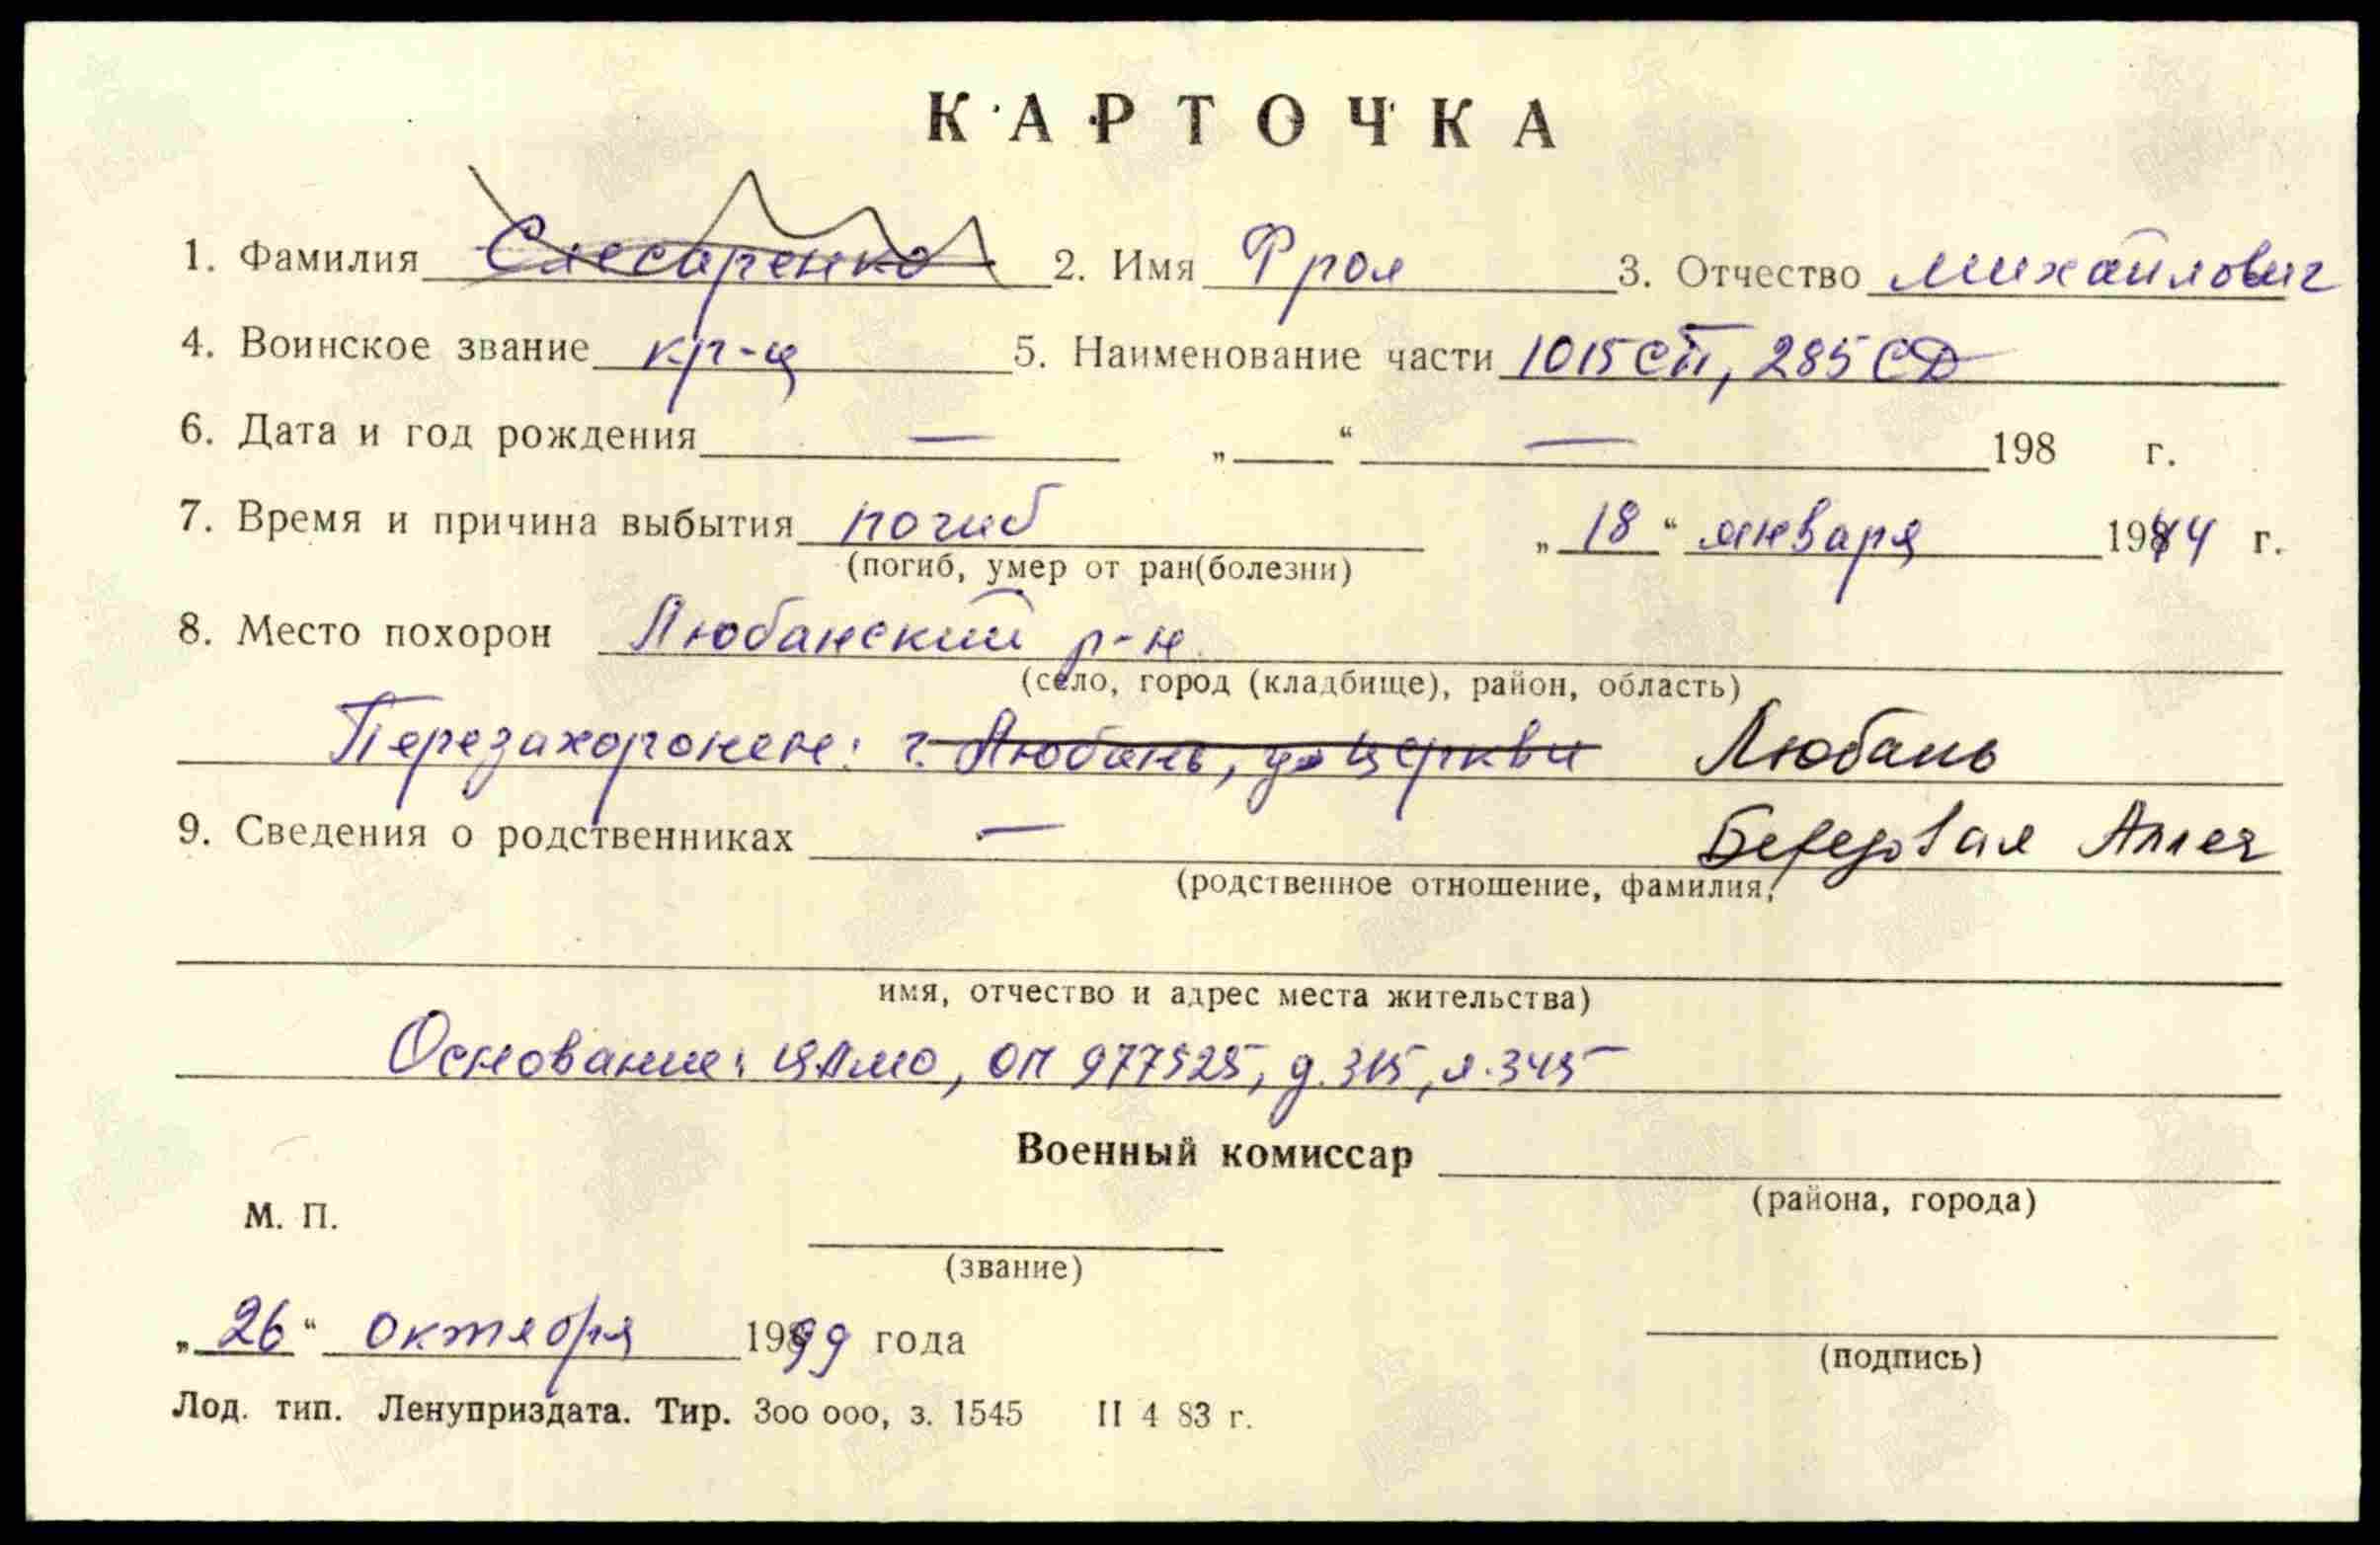 КАРТОЧКА
1. Фамилия Слесаренко 2. Имя Фрол 3. Отчество Михайлович
4. Воинское звание кр-ц 5. Наименование части 1015 СП, 285 СД
6. Дата и год рождения — „ “ — 198 г.
7. Время и причина выбытия погиб „18“ января 1944 г.
(погиб, умер от ран(болезни)
8. Место похорон Любанский р-н
(село, город (кладбище), район, область)
Перезахоронен: г. Любань, у церкви Любань
9. Сведения о родственниках — Березовая Аллея
(родственное отношение, фамилия,
имя, отчество и адрес места жительства)
Основание: ЦАМО, ОП 977525, д. 315, л. 345
Военный комиссар
(района, города)
М. П.
(звание)
„26“ октября 1999 года
(подпись)
Лод. тип. Ленуприздата. Тир. 300 000, з. 1545 II 4 83 г.